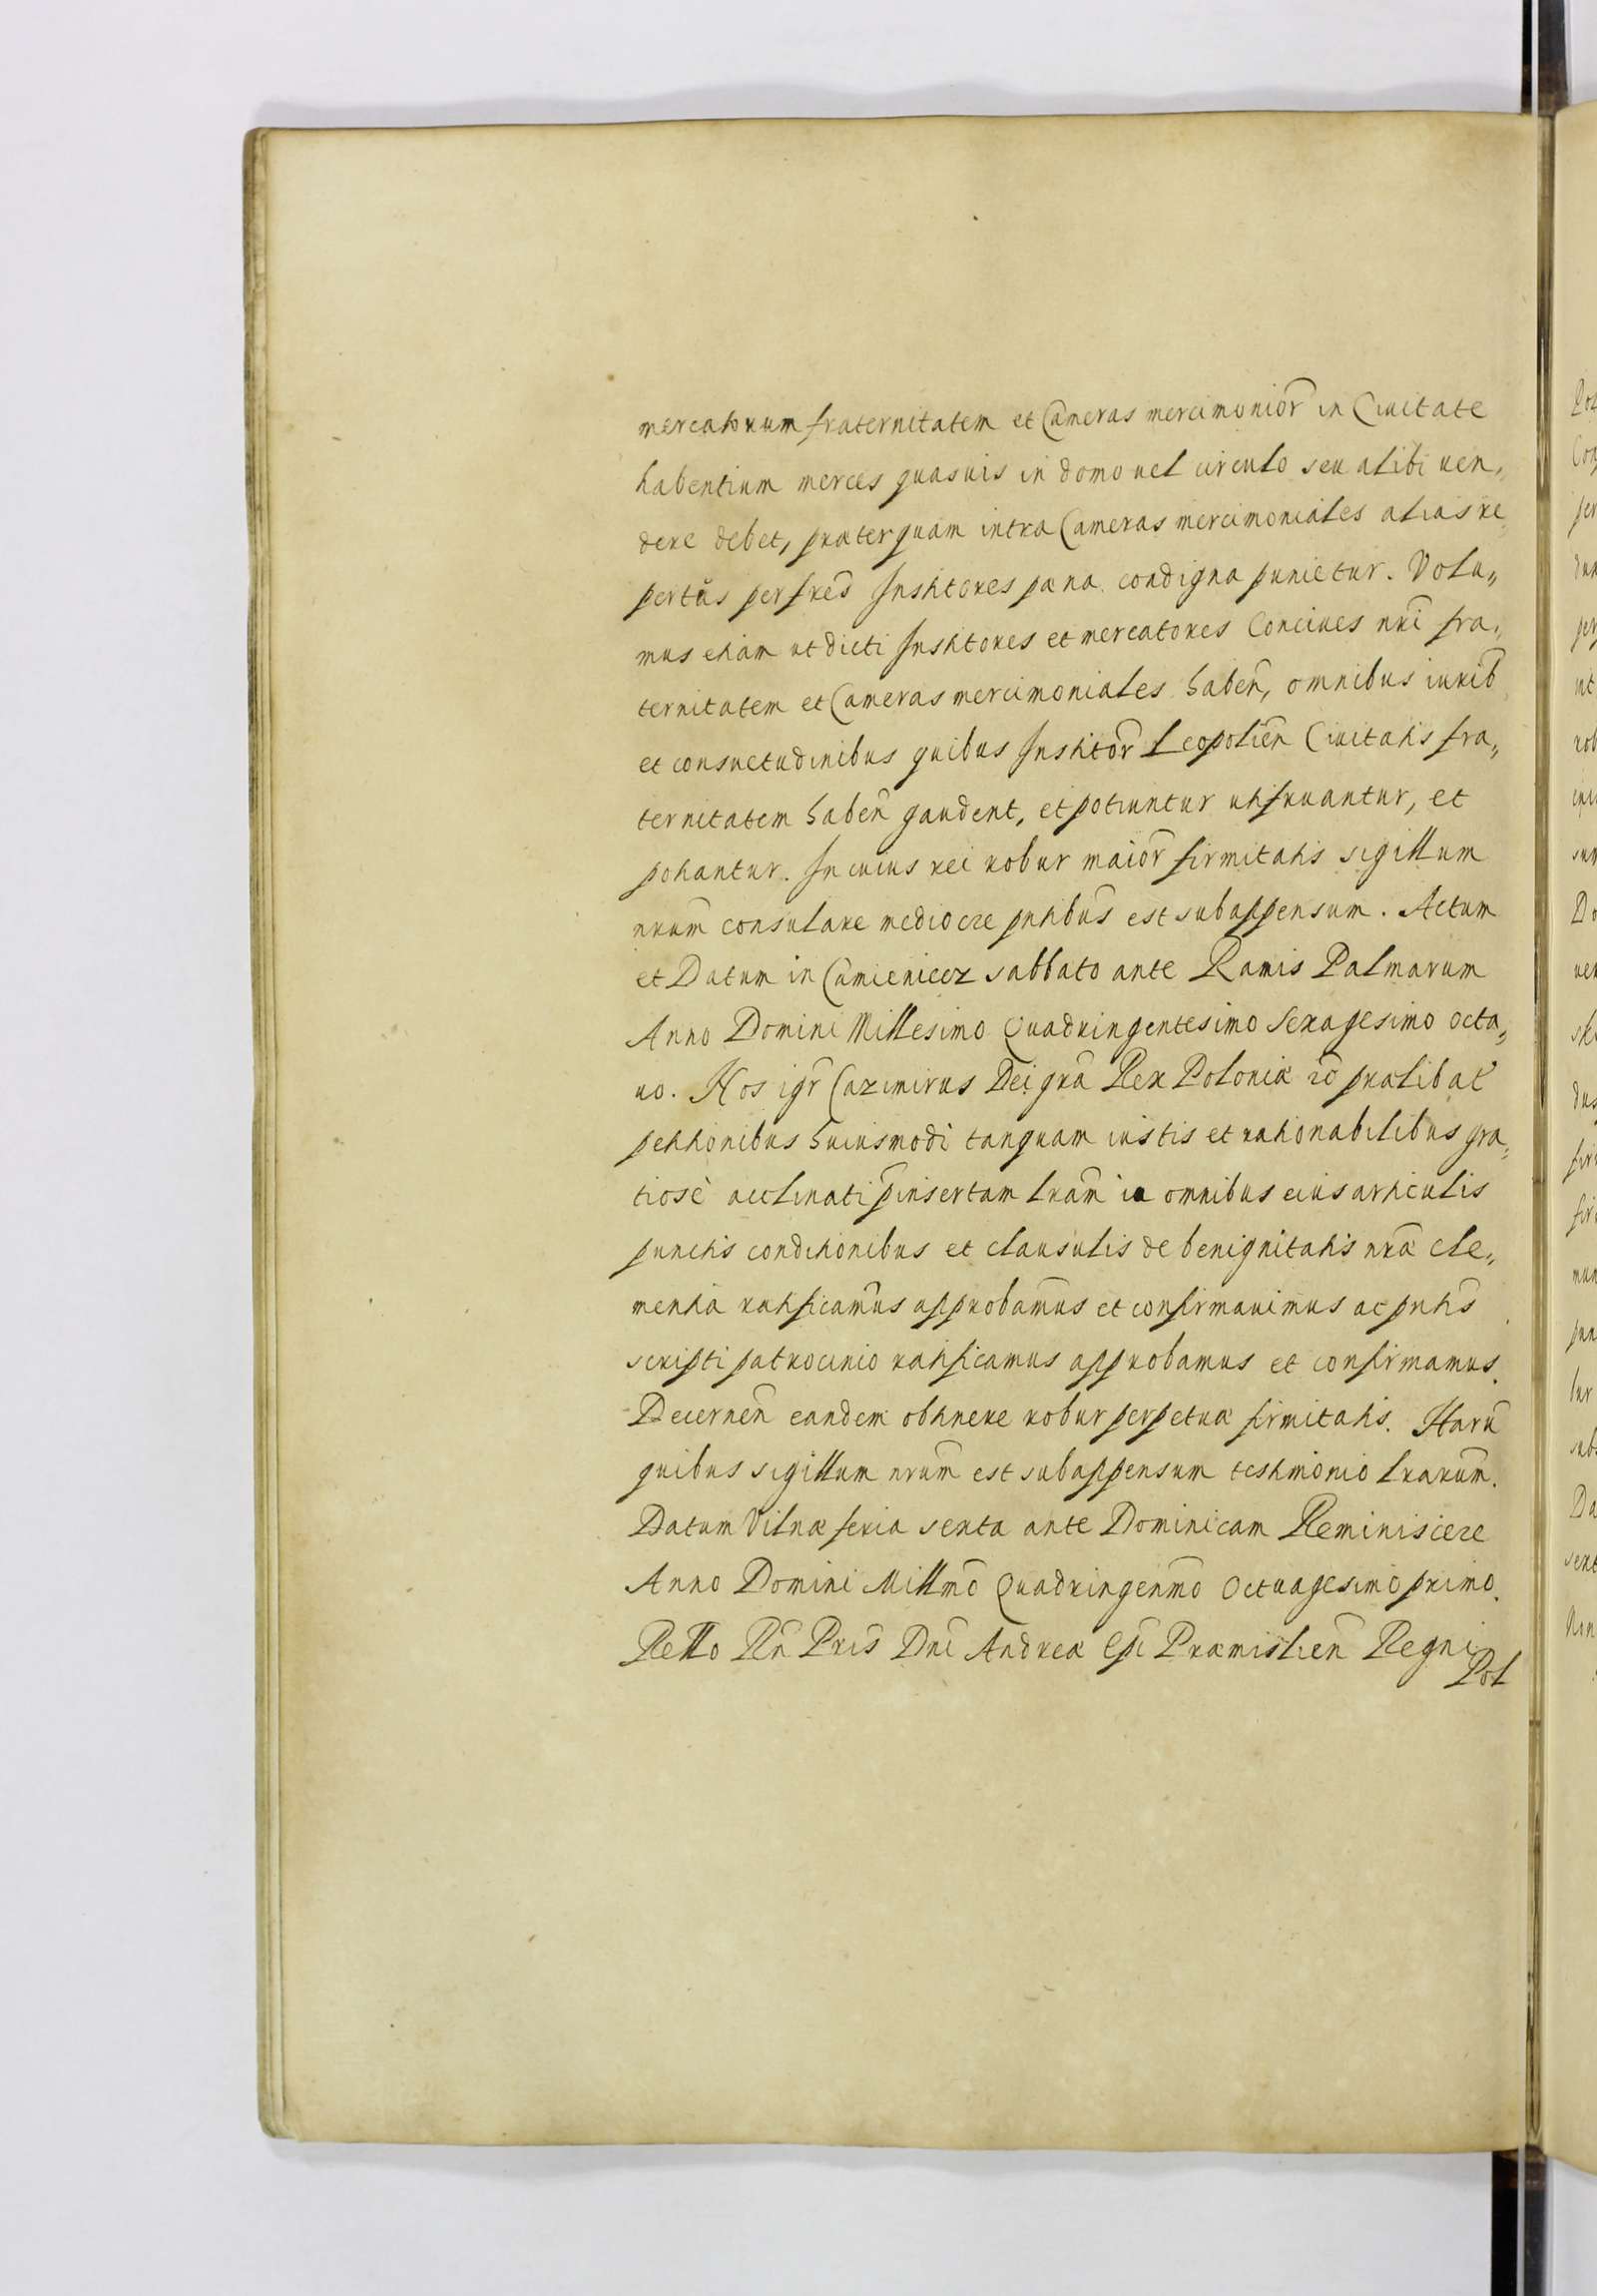 mercatorum fraternitatem et Cameras mercimonior̃ in Ciuitate
habentium merces quasuis in domo uel circulo seu alibi uen„
dere debet, præterquam intra Cameras mercimoniales alias re„
pertus per fres̃ Institores pæna condigna punietur. Volu„
mus etiam ut dicti Institores et mercatores Conciues nrĩ fra„
ternitatem et Cameras mercimoniales habeñ, omnibus iurib̃
et consuetudinibus quibus Institor̃ Leopolieñ Ciuitatis fra„
ternitatem habeñ gaudent, et potiuntur utifruantur, et
potiantur. In cuius rei robur maior̃ firmitatis sigillum
nrum̃ consulare mediocre pñtibus est subappensum. Actum
et Datum in Camieniecz sabbato ante Ramis Palmarum
Anno Domini Millesimo Quadringentesimo Sexagesimo octa„
uo. Nos igr̃ Cazimirus Dei grã Rex Poloniæ zc̃ prælibat̃
petitionibus huiusmodi tanquam iustis et rationabilibus gra„
tiosè acclinati p̃insertam lram̃ in omnibus eius articulis
punctis conditionibus et clausulis de benignitatis nrã cle„
mentia ratificamus approbamus et confirmauimus ac pñtis
scripti patrocinio ratificamus approbamus et confirmamus.
Decerneñ eandem obtinere robur perpetuæ firmitatis. Harũ
quibus sigillum nrum̃ est subappensum testimonio lrarum̃.
Datum Vilnæ feria sexta ante Dominicam Reminiscere
Anno Domini Millmõ Quadringenmõ Octuagesimo primo.
Rello Rñ Pris̃ Dnĩ Andreæ Epĩ Præmislieñ Regni
Pol